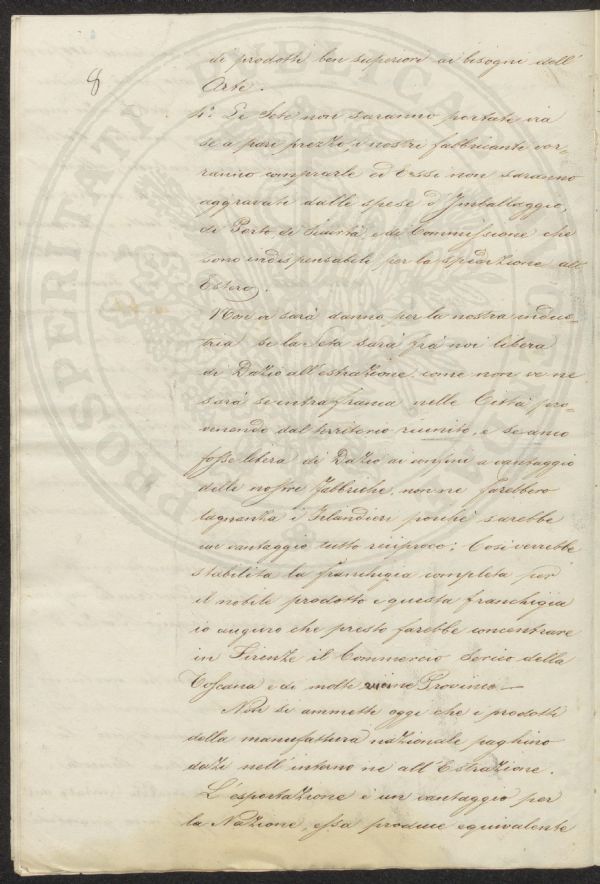 8
di prodotti ben superiori ai bisogni dell'
Arte.
4.° Le Sete non saranno portate via
se a pari prezzo, i nostri fabbricanti vor-
ranno comprarle ed Essi non saranno
aggravati dalle spese d'Imballaggio,
di Porto di Sicurtà, e di Commissione che
sono indispensabili per la spedizione all'
Estero.
Non vi sarà danno per la nostra indus-
tria se la Seta sarà frà noi libera
di Dazio all'estrazione, come non ve ne
sarà se entra franca nelle Città pro-
venendo dal territorio riunito, e se anco
fosse libera di Dazio ai confini a vantaggio
delle nostre Fabbriche, non ne farebbero
lagnanza i Filandieri perchè sarebbe
un vantaggio tutto reciproco; Così verrebbe
stabilita la franchigia completa per
il nobile prodotto e questa franchigia
io auguro che presto farebbe concentrare
in Firenze il Commercio Serico della
Toscana e di molte vicine Provincie —
Non si ammette oggi che i prodotti
della manufattura nazionale paghino
dazi nell'interno ne all'Estrazione.
L'esportazione è un vantaggio per
la Nazione, essa produce equivalente
PROSPERITATI PUBLICAE